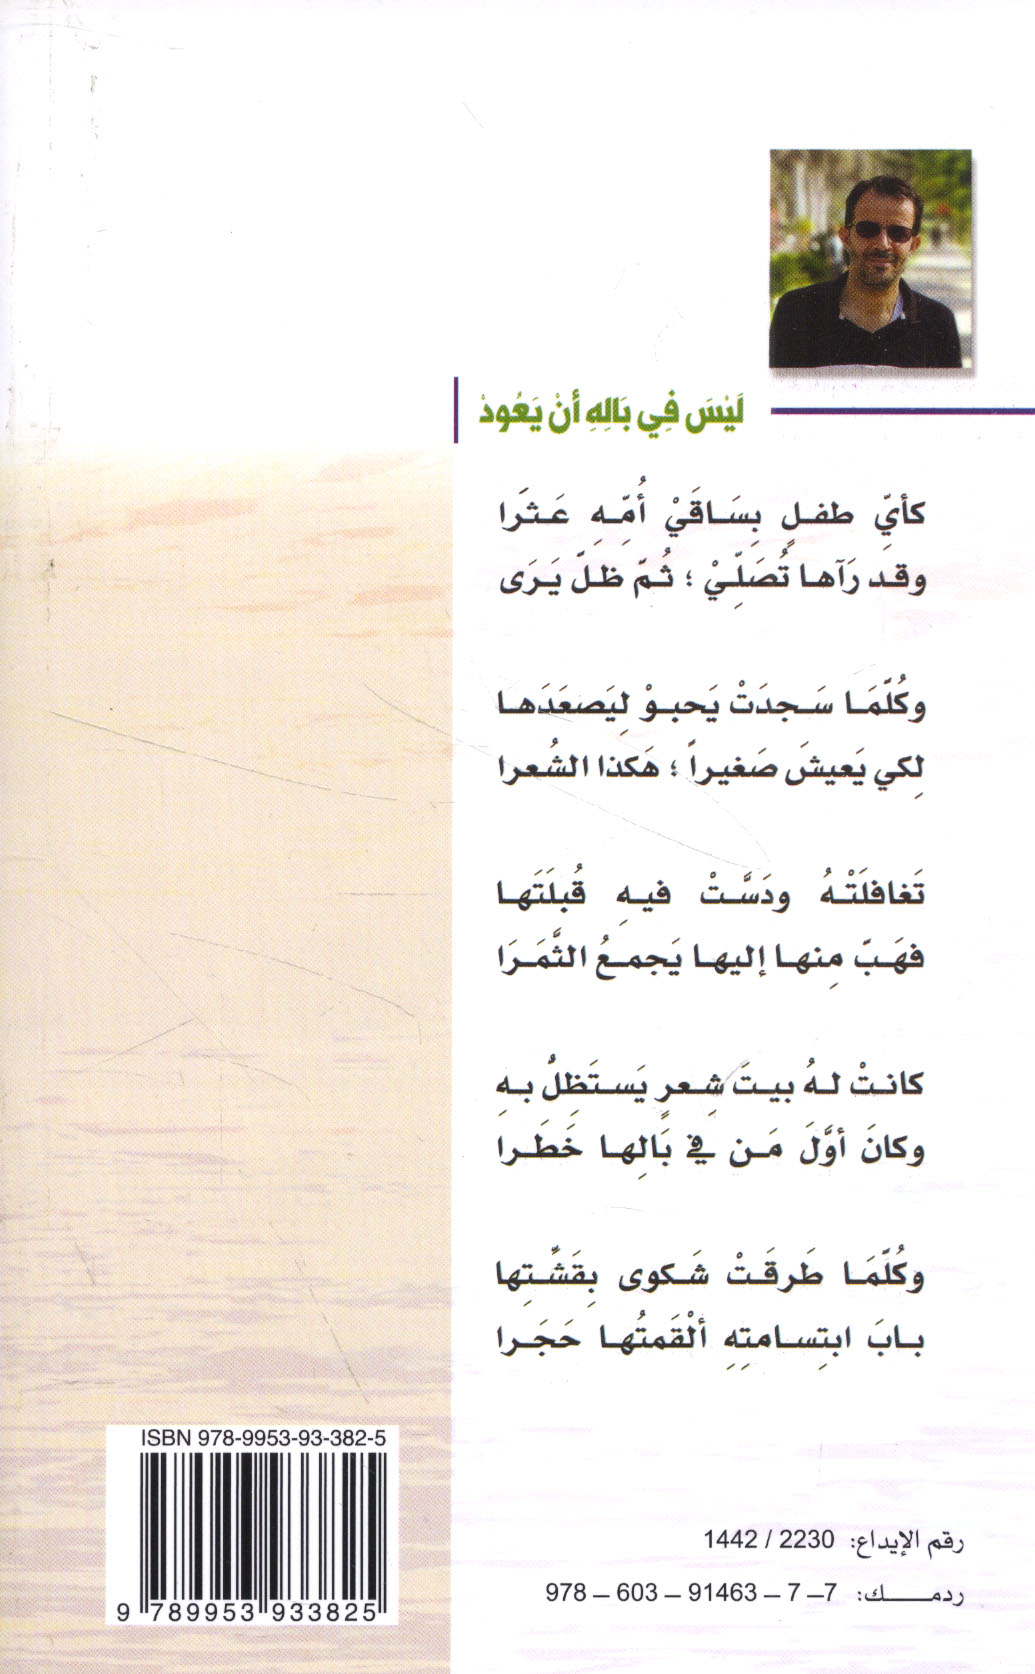 لَيْسَ فِي بَالِهِ أنْ يَعُودْ
كأيِّ طفـلٍ بِسَـاقَيْ أُمِّـهِ عَـثَرَا
وقـد رَآهـا تُصَلِّـيْ ؛ ثُـمّ ظلّ يَـرَى
وكُلَّمَـا سَـجدَتْ يَحبـوْ لِيَصعَدَهـا
لِكي يَعيشَ صَغيراً ؛ هَكذا الشُعرا
تَغافلَتْـهُ ودَسَّـتْ فيـهِ قُبلَتَهـا
فهَـبّ مِنهـا إليهـا يَجمـعُ الثَّمَـرَا
كانـتْ لـهُ بيـتَ شِـعرٍ يَسـتَظِلُّ بـهِ
وكانَ أوَّلَ مَـن في بَالِهـا خَطَـرا
وكُلَّمَـا طَرقَـتْ شَـكوى بِقَشّـتِها
بـابَ ابتِسـامتِهِ ألْقَمتُهـا حَجَـرا
ISBN 978-9953-93-382-5
9 789953 933825
رقم الإيداع: 2230 / 1442
ردمـــــك: 7– 7 – 91463 – 603 – 978